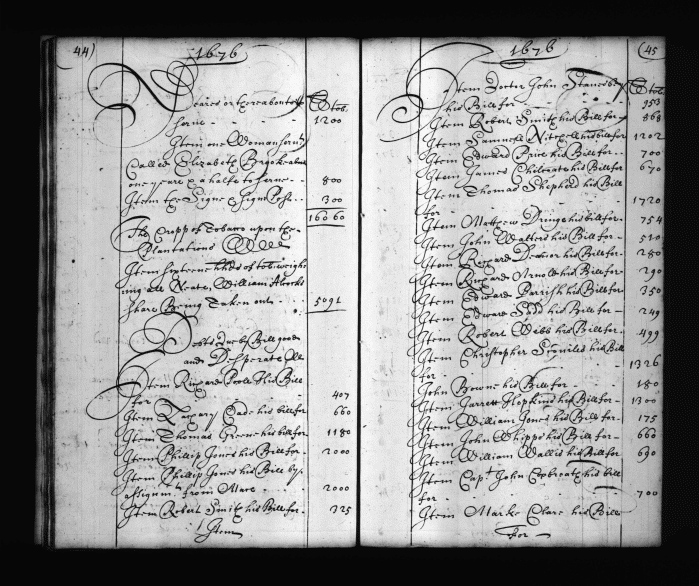 44)
1676
Yeares or thereabouts to Tob.
serve - - 1200
Item one Woman serv.t
Called Elizabeth Brooke about
one yeare & a halfe to serve - 800
Item the Signe & Signe Post - 300
16060
The Cropp of Tobacco upon the
Plantations
Item hhds of tob: weigh
ing all Neate, William
share Being Taken out - 5091
Debts due by Bill good
and Desperate
Item Richard Poole His Bill
for - 407
Item Cade his bill for 660
Item Thomas Greene his bill for 1180
Item Phillip Jones his Bill for - 2000
Item Phillip Jones his Bill by
Assignm.t from Mare - 2000
Item Robert Smith his Bill for - 325
Item
1676
(45
Item Doctor John Stanesby Tob.
his Bill for - 953
Item Robert Smith his Bill for 868
Item Samuell his bill for 1202
Item Edward Price his Bill for - 700
Item James his Bill for 670
Item Thomas Shepherd his Bill
for - 1720
Item Mathew his bill for - 754
Item John Watters his Bill for - 510
Item Richard his Bill for - 280
Item Richard Arnold his Bill for - 290
Item Edward Parrish his Bill for - 350
Item Edward his Bill for - 249
Item Robert Webb his Bill for - 499
Item Christopher his Bill
for - 1326
John Bowne his Bill for - 180
Item Garrett Hopkins his Bill for - 1300
Item William Jones his Bill for - 175
Item John Whipps his Bill for - 660
Item William Wallis his Bill for 630
Item Cap.t John his bill
for - 700
Item Marke Clare his Bill
For